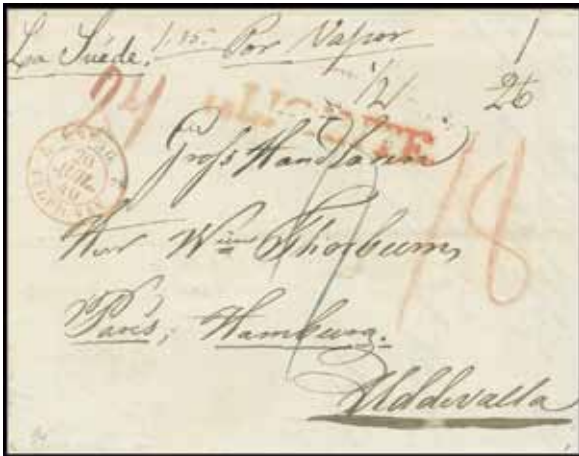 La Suéde. Por Vapor
1/2 26
24 ALICANTE
20
JUIL.
49
Gross Handlaren
Herr Wm Thorburn,
18
Paris, Hamburg.
Uddevalla